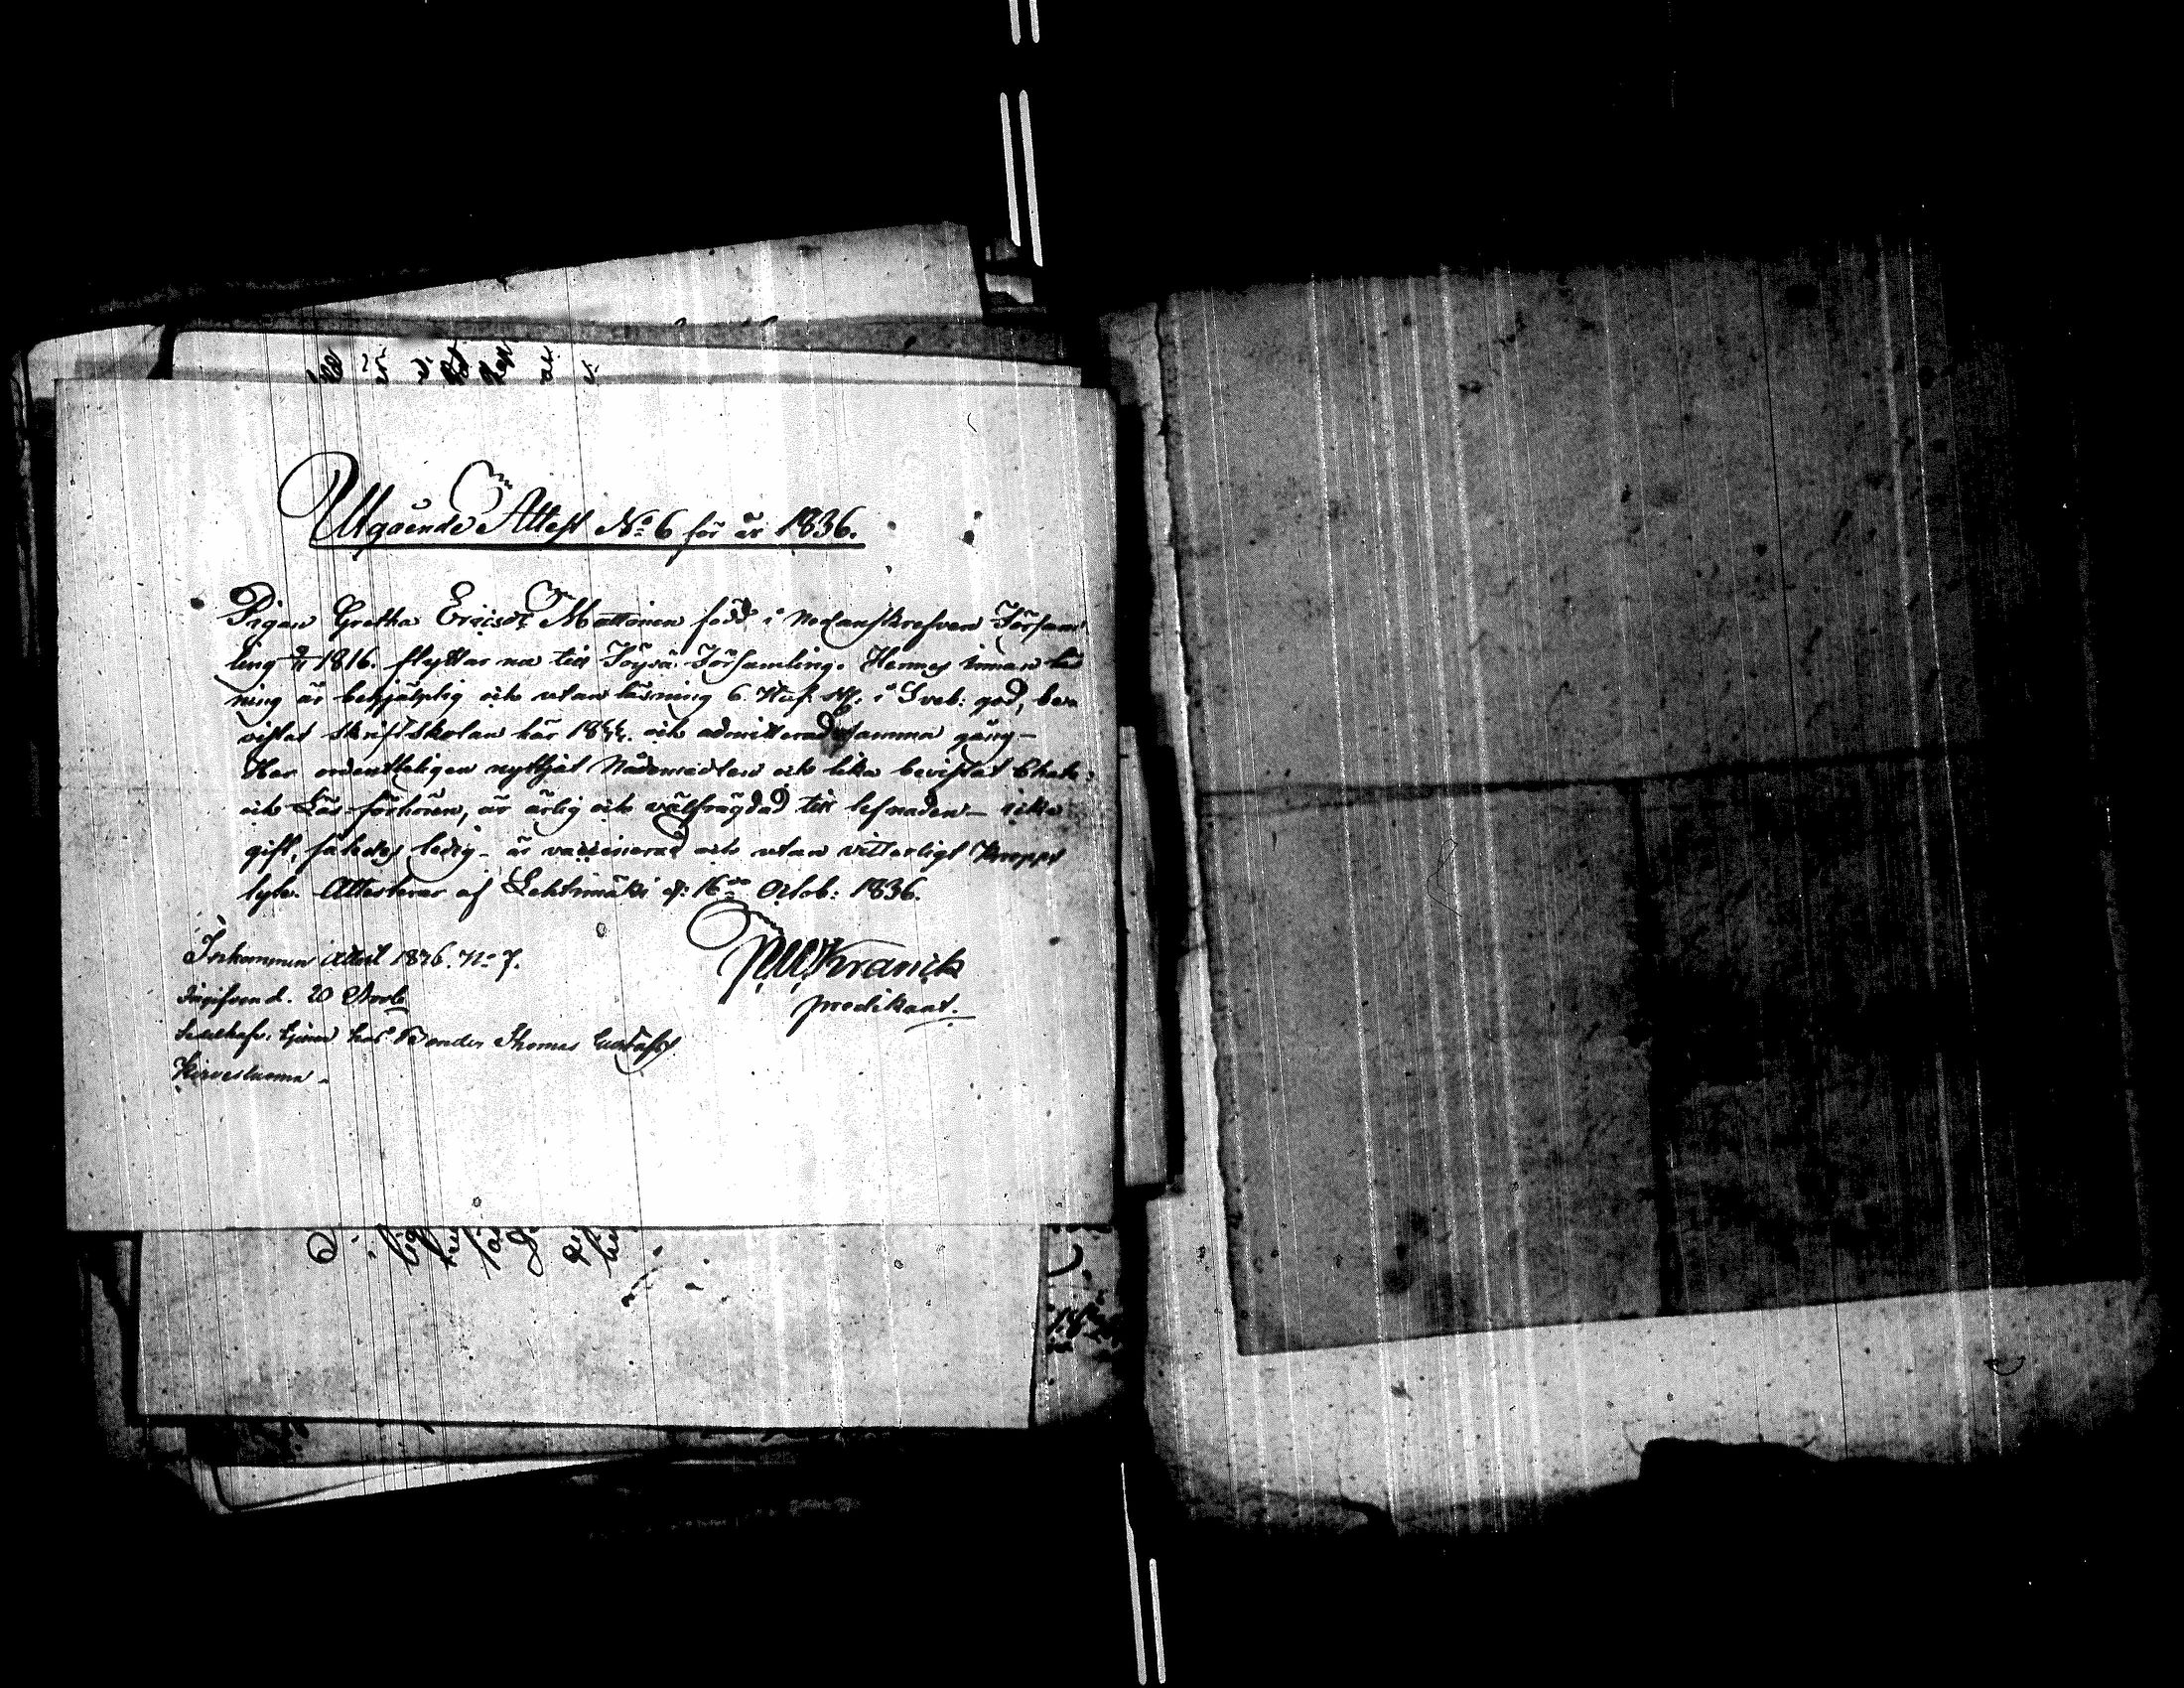 Utgående Attest No 6 för år 1836.
Pigan Gretha Ericsdr Mattinen född i nedanskrefven Försam
ling 1816. flyttar nu till Töysä Församling. Hennes innan läs
ning är behjälplig och utan läsning 6 Huf. st. i Sveb: god, be
vistat Skriftskolan här och admitterad samma gång –
Har ordentligen nyttjat Nådemedlen och lika bevistat Chate
och Läs-förhören, är ärlig och välfrägdad till lefnaden – icke
gift, således ledig – är vaccinerad och utan vitterligt kropps
lyte. Attesterar af Lehtimäki d: 16de Octob: 1836.
Kranck
predikant.
Inkommen attest 1836. No 7.
Ingifven d. 20 Novb
Sedelhafv. tjenar hos Bonden Thomas Gustafss
Hirvesluoma –